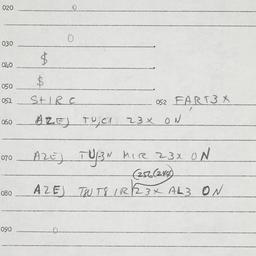 020 0
030 0
040 $
050 $
051 STIRC 052 FART3X
060 AZEJ TU,CI 23X ON
070 AZEJ TUJ3N MIR 23X ON
080 AZEJ 23X AL3 ON
090 0